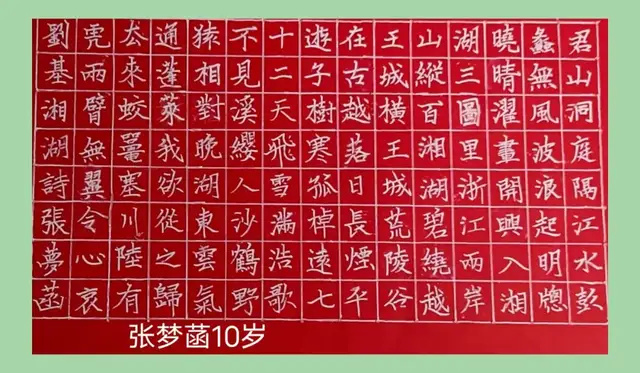 君山洞庭隅江水彭
蠡無風波浪起明牕
曉晴濯畫開興入湘
湖三圖里浙江兩岸
山縱百湘湖碧繞越
王城橫王城荒陵谷
在古越落日長煙平
遊子樹寒孤棹遠七
十二天飛雪滿浩歌
不見溪纓人沙鶴野
猿相對晚湖東雲氣
通蓬萊我欲從之歸
厺來蛟鼉塞川陸有
虎兩臂無翼令心哀
劉基湘湖詩張夢菡
张梦菡10岁